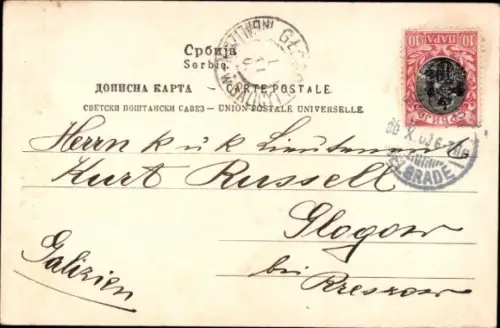 Србија
Serbie
ДОПИСНА КАРТА — CARTE POSTALE.
СВЕТСКИ ПОШТАНСКИ САВЕЗ – UNION POSTALE UNIVERSELLE.
10 ПАРА 10
Herrn k u k Lieutenant
Kurt Russell
Glogow
bei
Rzeszow
Galizien